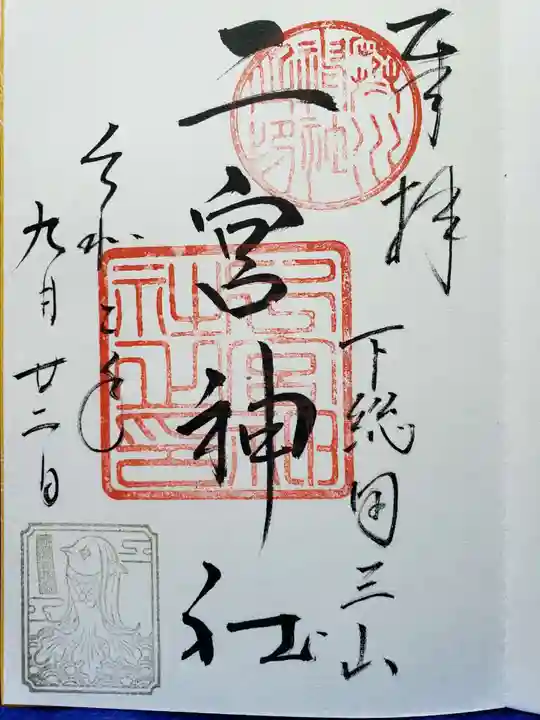 奉拝
下総国三山
二宮神社
令和三年
九月廿二日